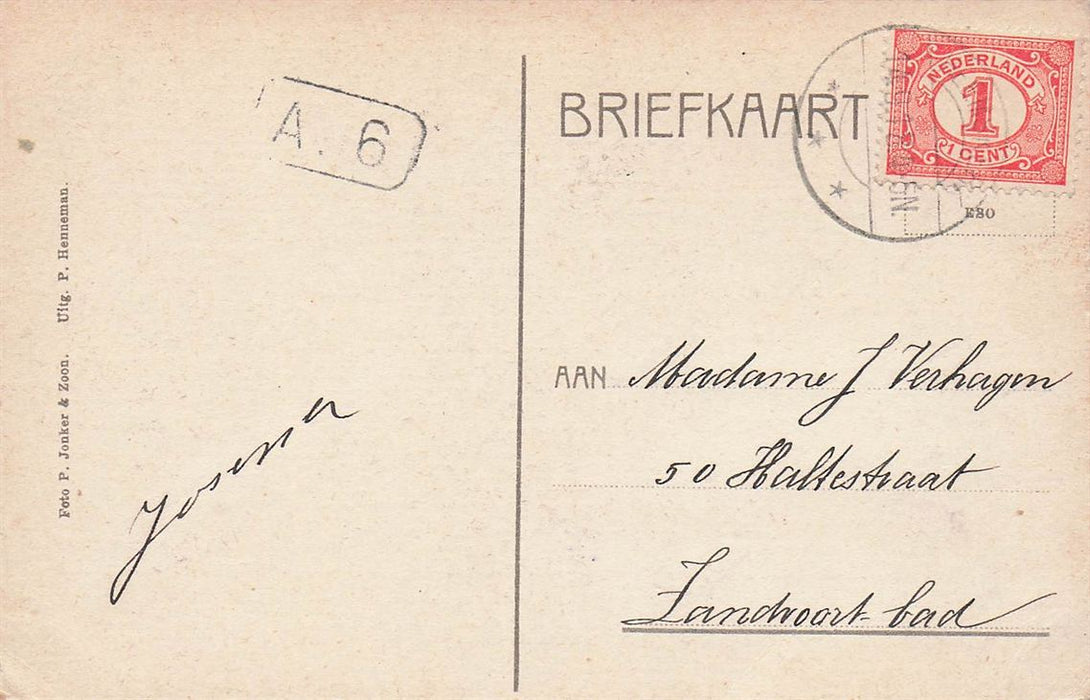 Foto P. Jonker & Zoon. Uitg. P. Henneman.
A. 6
BRIEFKAART
NEDERLAND
1
1 CENT
AAN Madame J Verhagen
50 Haltestraat
Zandvoort-bad